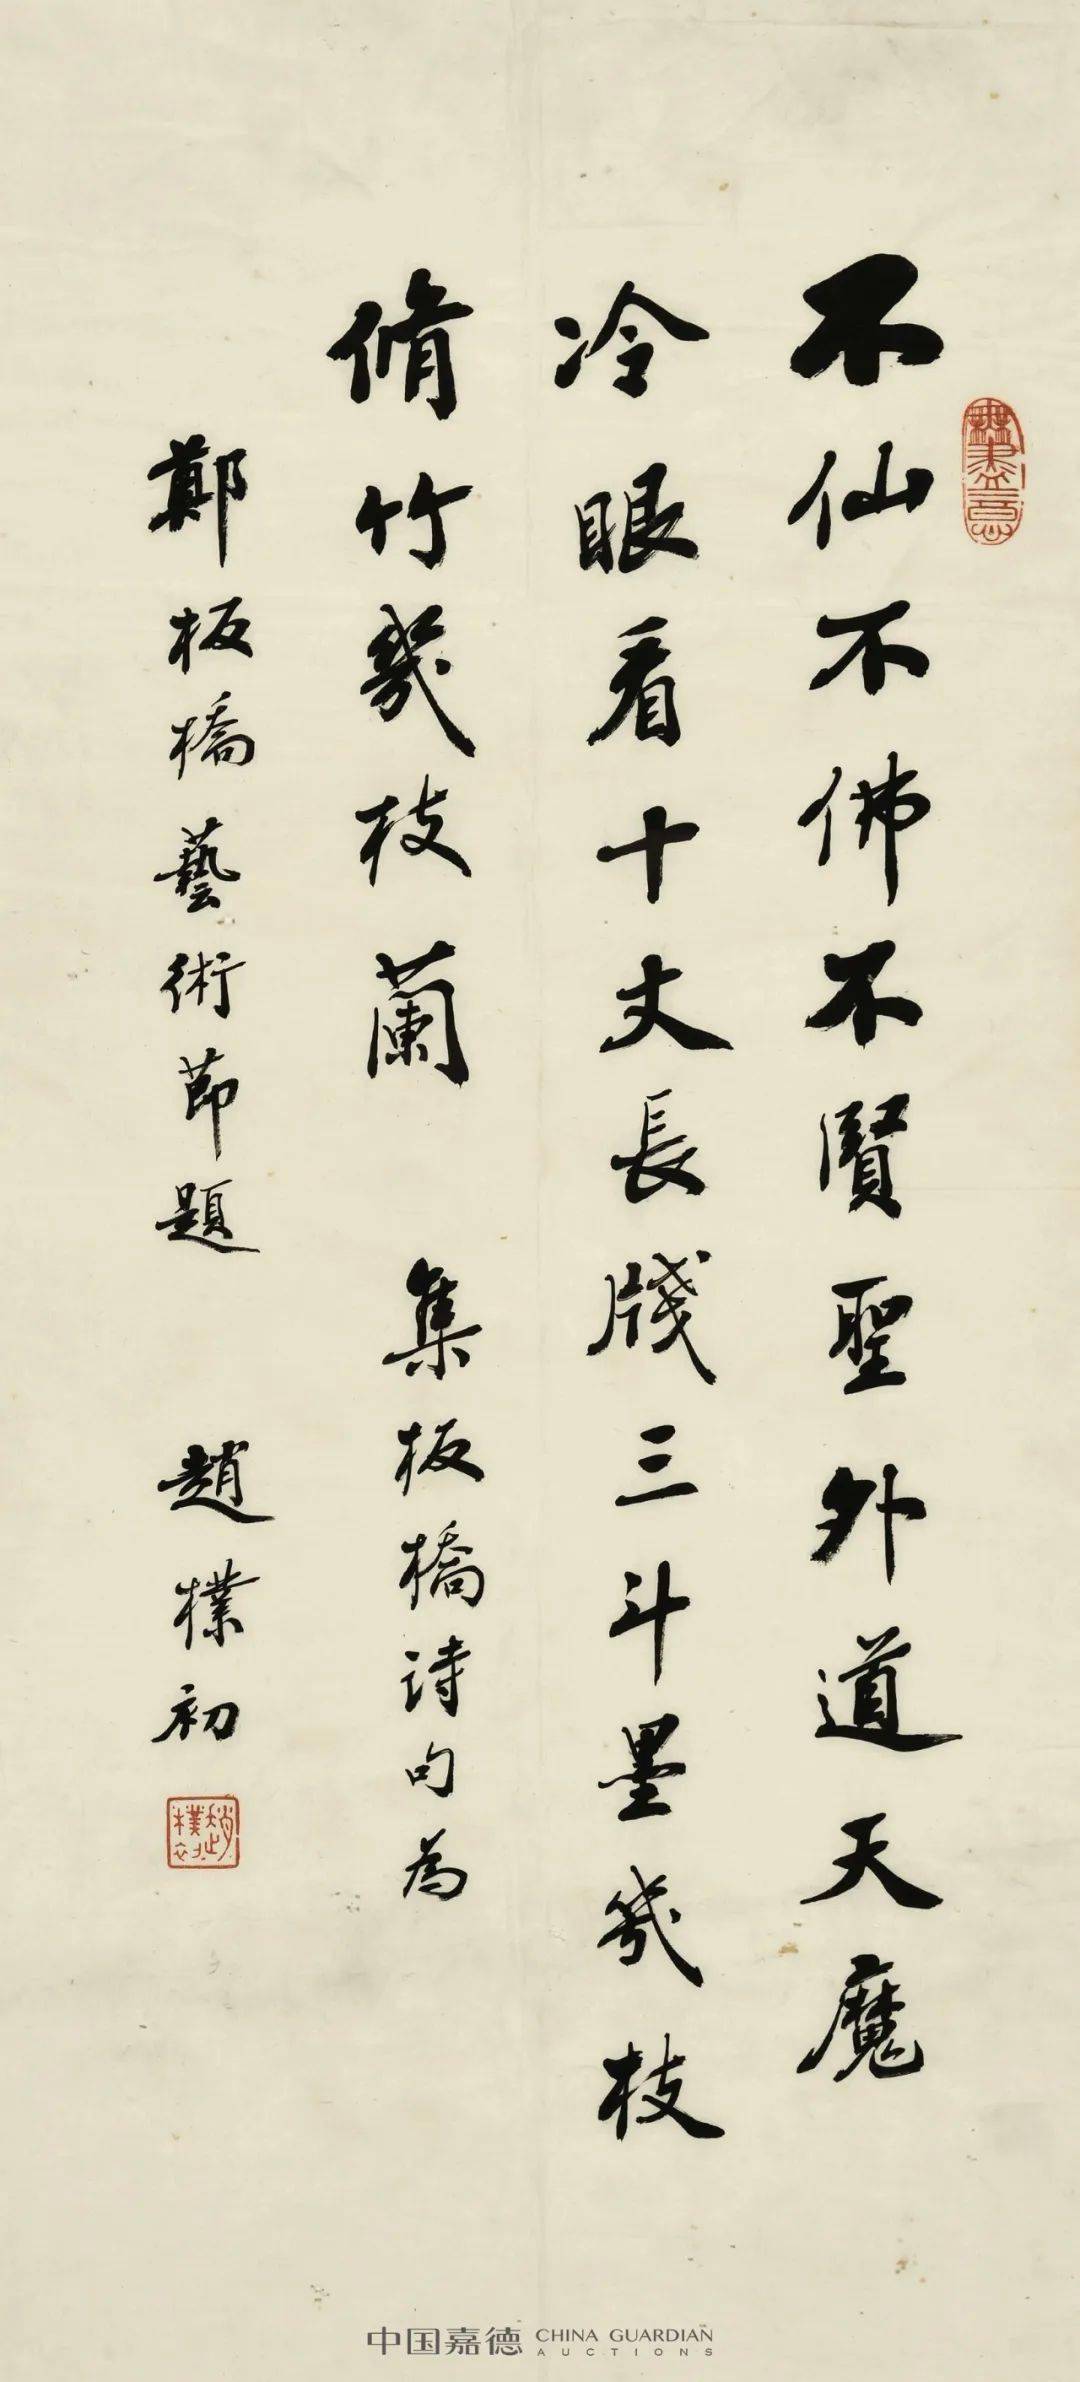 不仙不佛不賢聖外道天魔
冷眼看十丈長牋三斗墨幾枝
脩竹幾枝蘭 集板橋詩句為
鄭板橋藝術節題 趙樸初
無盡意
趙樸初
中国嘉德 CHINA GUARDIAN
AUCTIONS